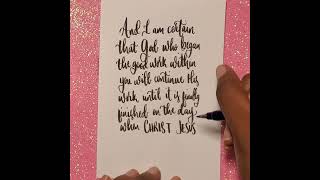 And I am certain
that God who began
the good work within
you will continue His
work until it is finally
finished on the day
when CHRIST JESUS